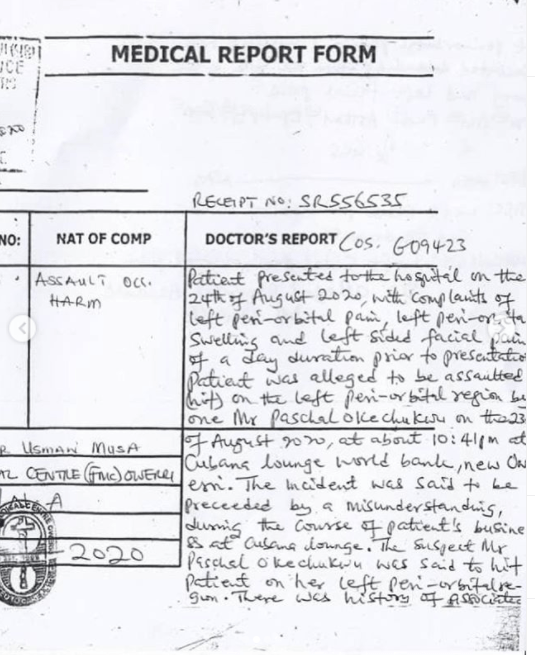 MEDICAL REPORT FORM
RECEIPT NO: SR556535
NO:
NAT OF COMP
DOCTOR'S REPORT COS. G09423
ASSAULT OCC.
HARM
Patient presented to the hospital on the
24th of August 2020, with complaints of
left peri-orbital pain, left peri-or
Swelling and left sided facial pain
of a day duration prior to presentation
Patient was alleged to be assaulted
(hit) on the left peri-orbital region by
one Mr Paschal Okechukwu on the 23
of August 2020, at about 10:41pm at
Cubana lounge world bank, new Ow
erri. The incident was said to be
preceeded by a misunderstanding,
during the course of patient's busine
ss at Cubana lounge. The suspect Mr
Paschal Okechukwu was said to hit
Patient on her left peri-orbital re-
gion. There was history of associated
USMAN MUSA
CENTRE (FMC) OWERRI
2020